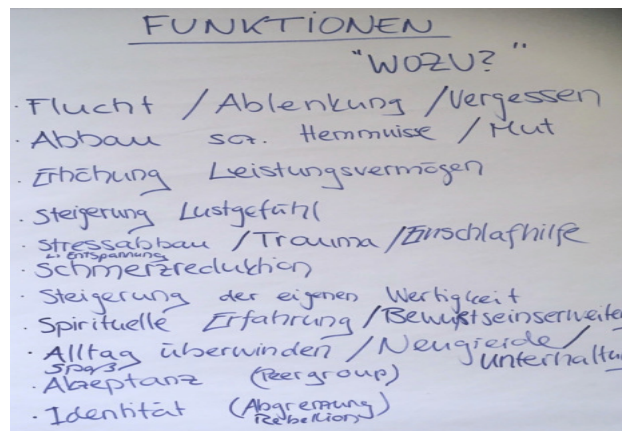 FUNKTIONEN
"WOZU?"
· Flucht / Ablenkung / Vergessen
· Abbau soz. Hemmnise / Mut
· Erhöhung Leistungsvermögen
· Steigerung Lustgefühl
· Stressabbau / Trauma / Einschlafhilfe
↳ Entspannung
· Schmerzreduktion
· Steigerung der eigenen Wertigkeit
· Spirituelle Erfahrung / Bewußtseinserweiter
· Alltag überwinden / Neugierde /
Spaß Unterhaltu
· Akzeptanz (Peergroup)
· Identität (Abgrenzung)
Rebellion